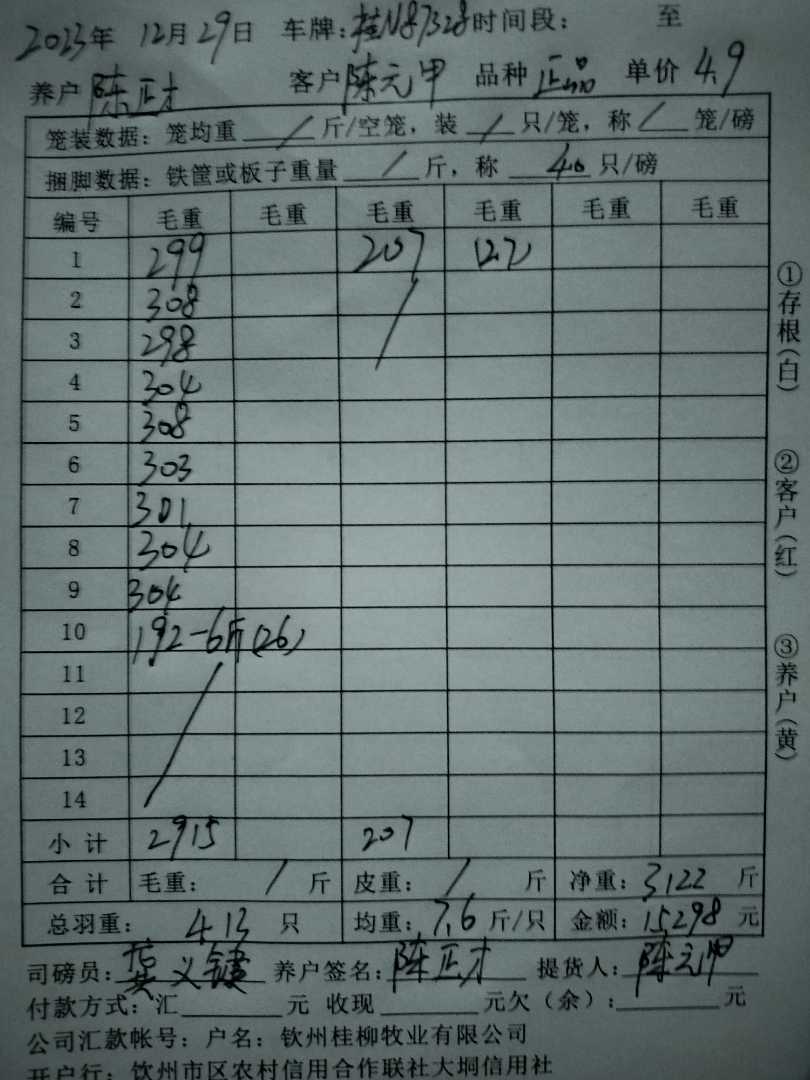 2023年 12月29日 车牌:桂N87328时间段: 至
养户 陈正才 客户陈元甲 品种 正品 单价 4.9
笼装数据: 笼均重 / 斤/空笼, 装 / 只/笼, 称 / 笼/磅
捆脚数据: 铁筐或板子重量 / 斤, 称 40 只/磅
编号 毛重 毛重 毛重 毛重 毛重 毛重
1 299 207 (27)
2 308
3 298
4 304
5 308
6 303
7 301
8 304
9 304
10 192-6斤(26)
11
12
13
14
小计 2915 207
合计 毛重: / 斤 皮重: / 斤 净重: 3122 斤
总羽重: 413 只 均重: 7.6 斤/只 金额: 15298 元
司磅员: 龚义键 养户签名: 陈正才 提货人: 陈元甲
付款方式: 汇 元 收现 元欠(余): 元
公司汇款帐号: 户名: 钦州桂柳牧业有限公司
开户行: 钦州市区农村信用合作联社大垌信用社
①存根(白)
②客户(红)
③养户(黄)